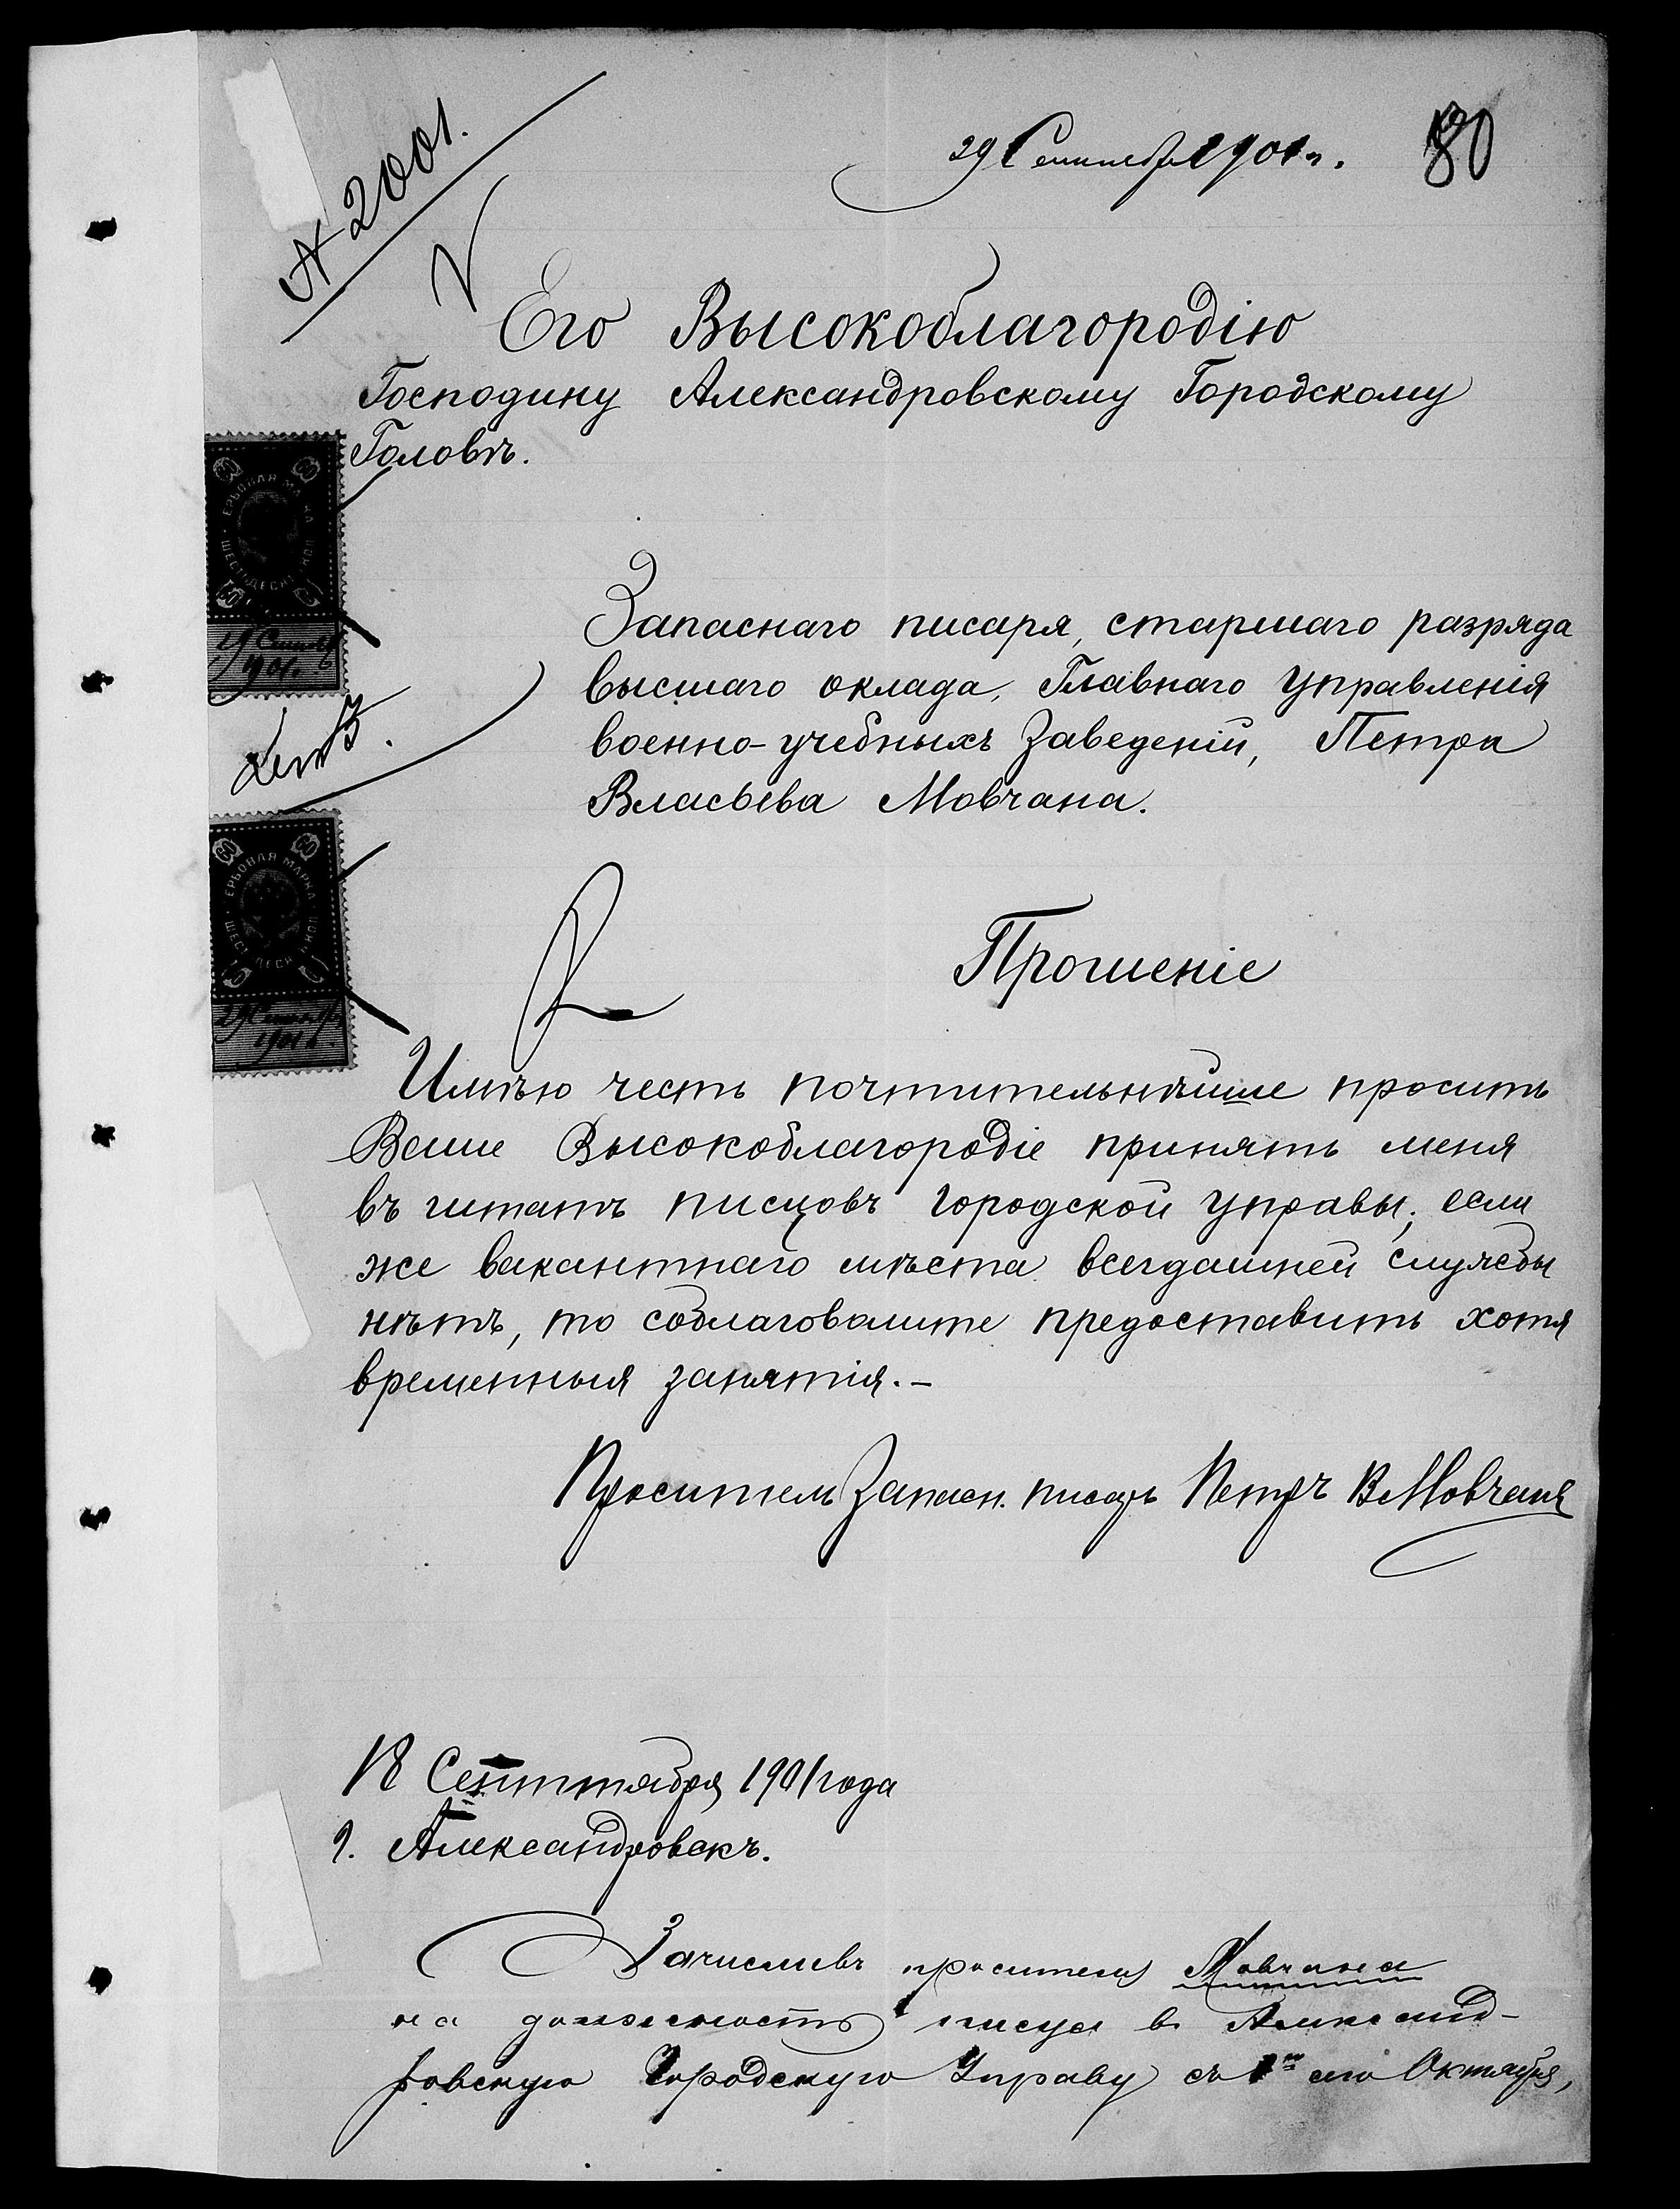 № 2001.
29 Сентября 1901 г.
80
Его Высокоблагородію
Господину Александровскому Городскому
Головѣ.
ЕРБОВАЯ МАРКА
ШЕСТЬДЕСЯ КОП
60
29 Сентября
1901 г.
Запаснаго писаря, старшаго разряда
высшаго оклада, Главнаго Управленія
военно-учебныхъ Заведеній, Петра
Власьева Мовчана.
ЕРБОВАЯ МАРКА
ШЕСТ ДЕСЯ КОП
60
29 Сентября
1901 г.
Прошеніе
Имѣю честь почтительнѣйше просить
Ваше Высокоблагородіе принять меня
въ штатъ писцовъ городской управы; если
же вакантнаго мѣста всегдашней службы
нѣтъ, то соблаговолите предоставить хотя
временныя занятія.-
Проситель Запасн. писарь Петръ В Мовчанъ
18 Сентября 1901 года
г. Александровскъ.
Зачисливъ просителя Мовчана
на должность писца въ Александ-
ровскую Городскую Управу съ 1го Октября,